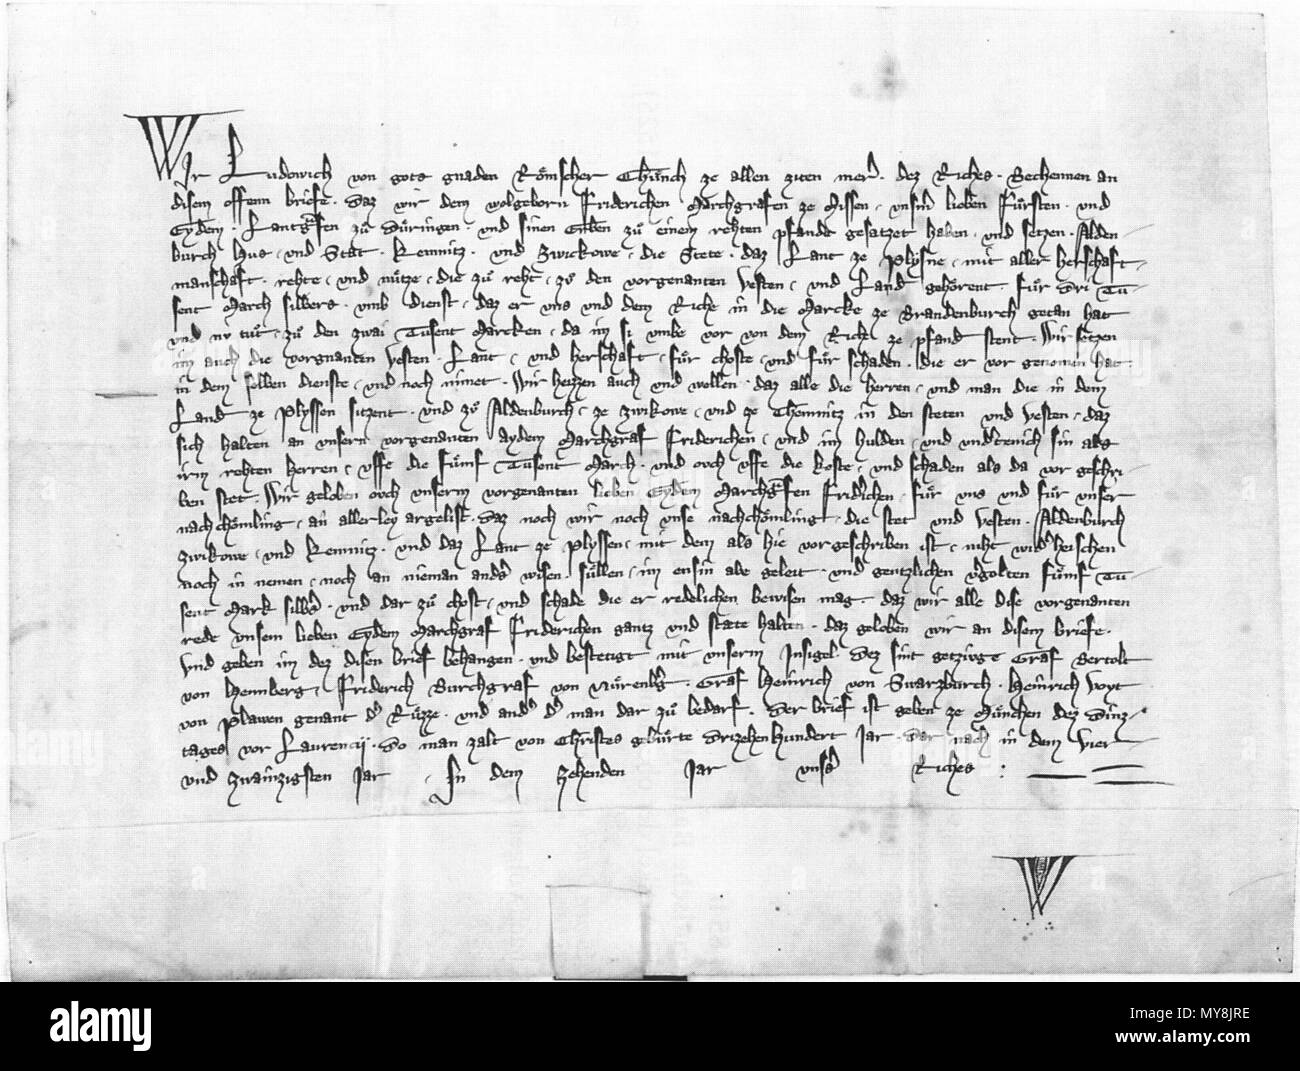 Wir Ludowich von gots gnaden Römscher Chünch ze allen ziten merer dez Riches · Bechennen an
disem offenn briefe · daz wir dem wolgeborn Friderichen Marchgrafen ze Missen · unserm lieben Fürsten · und
Eydem · Lantgrafen zů Düringen · und sinen Erben zů einem rehten pfande gesatzet haben · und setzen · Alden-
burch Hus · und Stat · Kemnitz · und Zwickowe · die Stete · daz Lant ze Plysne · mit aller herschaft ·
manschaft · rehte · und nütze · die zů reht · zů den vorgenanten Vesten · und Land gehörent für dri Tu-
sent March silbers · umb dienst · daz er uns und dem Riche in die Marcke ze Brandenburch getan hat
und nu tůt · zů den zwai Tusent Marcken · da im si umbe vor von dem Riche ze pfand stent · Wir setzen
im auch die vorgnanten Vesten · Lant · und herschaft · für choste · und für schaden · die er vor genomen hat
in dem selben dienste · und noch nimet · Wir heizzen auch und wellen · daz alle die herren · und man die in dem
Land ze Plyssen sitzent · und zů Aldenburch · ze Zwikowe · und ze Chemnitz in den steten und Vesten · daz
sich halten an unsern vorgenanten aydem Marchgraf Friderichen · und im hulden · und undertenich sin als
irm rehten herren · uffe die fümf Tusent March · und ouch uffe die koste · und schaden als da vor geschri-
ben stet · Wir geloben ouch unserm vorgenanten lieben Eydem Marchgrafen Friderichen · für uns und für unser
nachchömling · an allerley argelist · daz noch wir noch unse nachchömling · die stet und Vesten · Aldenburch
Zwikowe · und Kemnitz · und daz Lant ze Plyssen · mit dem als hie vorgeschriben ist · niht wider heischen
noch in nemen · noch an nieman anders wisen · süllen · im ensin abe geleit · und gentzlichen vergolten fümf Tu-
sent Mark silbers · und dar zů chost · und schade die er redelichen bewisen mag · daz wir alle dise vorgenanten
rede unsern lieben Eydem Marchgraf Friderichen gantz und state halten · daz geloben wir an disem briefe ·
Und geben im dez disen brief behangen · und bestetigt mit unserm Insigel · Dez sint getzivge Graf Bertolt
von Hennberg · Friderich Burchgraf von Nürenberg · Graf Heinrich von Swarzburch · Heinrich Voyt
von Plawen genant der Rüzze · und ander der man dar zů bedarf · Der brief ist geben ze München dez Dinz-
tages vor Laurencij · Do man zalt von Christes gebürte drizehenhundert Jar · dar nach in dem Vier-
und zwainzigsten Jar · In dem zehenden Jar unsers Riches :
alamy
a
alamy
Image ID: MY8JRE
www.alamy.com